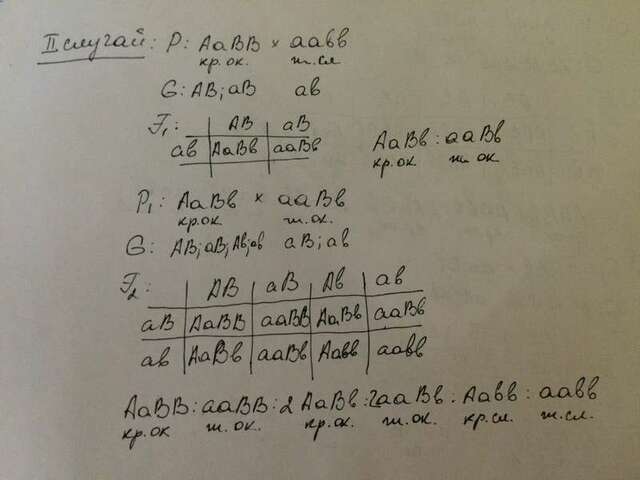 II случай: P: AaBB × aaвв
кр.ок. ж.сл
G: AB; aB aв
F1: AB aB
aв AaBв aaBв
AaBв : aaBв
кр.ок ж.ок.
P1: AaBв × aaBв
кр.ок ж.ок.
G: AB; aB; Aв; aв aB; aв
F2: AB aB Aв aв
aB AaBB aaBB AaBв aaBв
aв AaBв aaBв Aaвв aaвв
AaBB : aaBB : 2 AaBв : 2aaBв : Aaвв : aaвв
кр.ок ж.ок. кр.ок. ж.ок. кр.сл ж.сл.